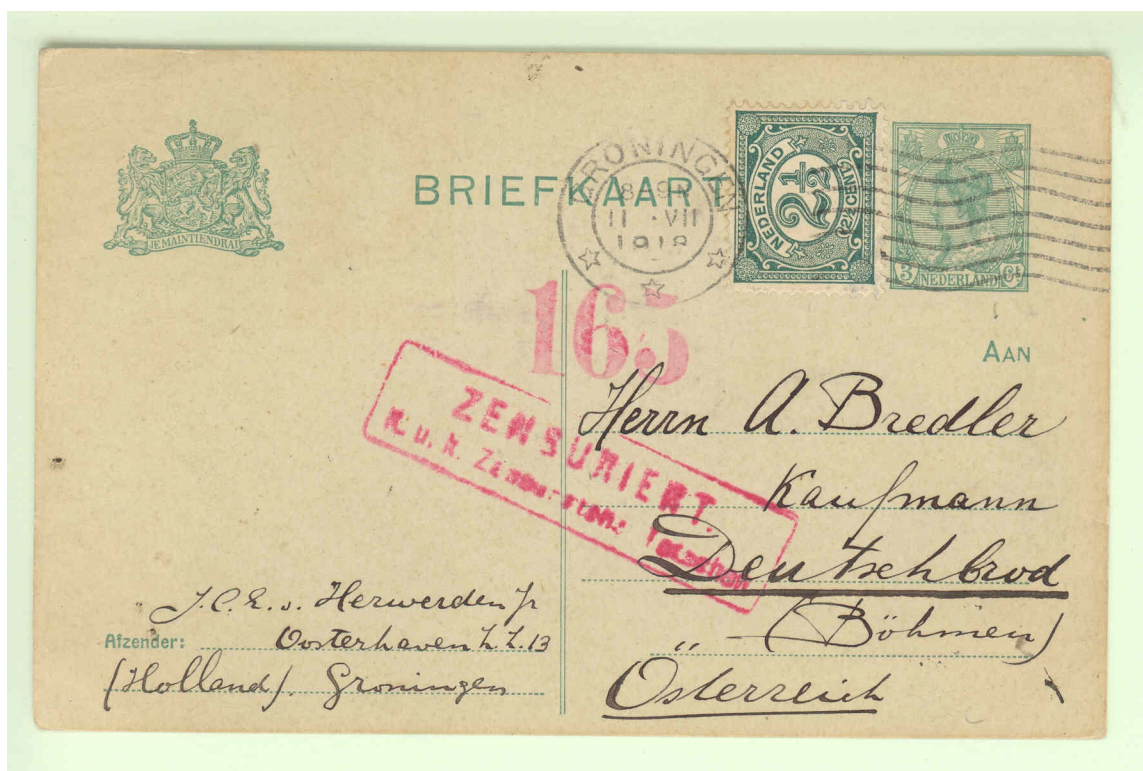 JE MAINTIENDRAI
BRIEFKAART
GRONINGEN
8-9N
11 VII
1918
NEDERLAND
2½
2½ CENT
3 Ct
NEDERLAND
165
ZENSURIERT.
K.u.k. Zensurstelle Tetschen
AAN
Herrn A. Bredler
Kaufmann
Deutschbrod
(Böhmen)
Österreich
J.C.E.v. Herwerden Jr
Afzender: Oosterhaven Z.Z. 13
(Holland). Groningen